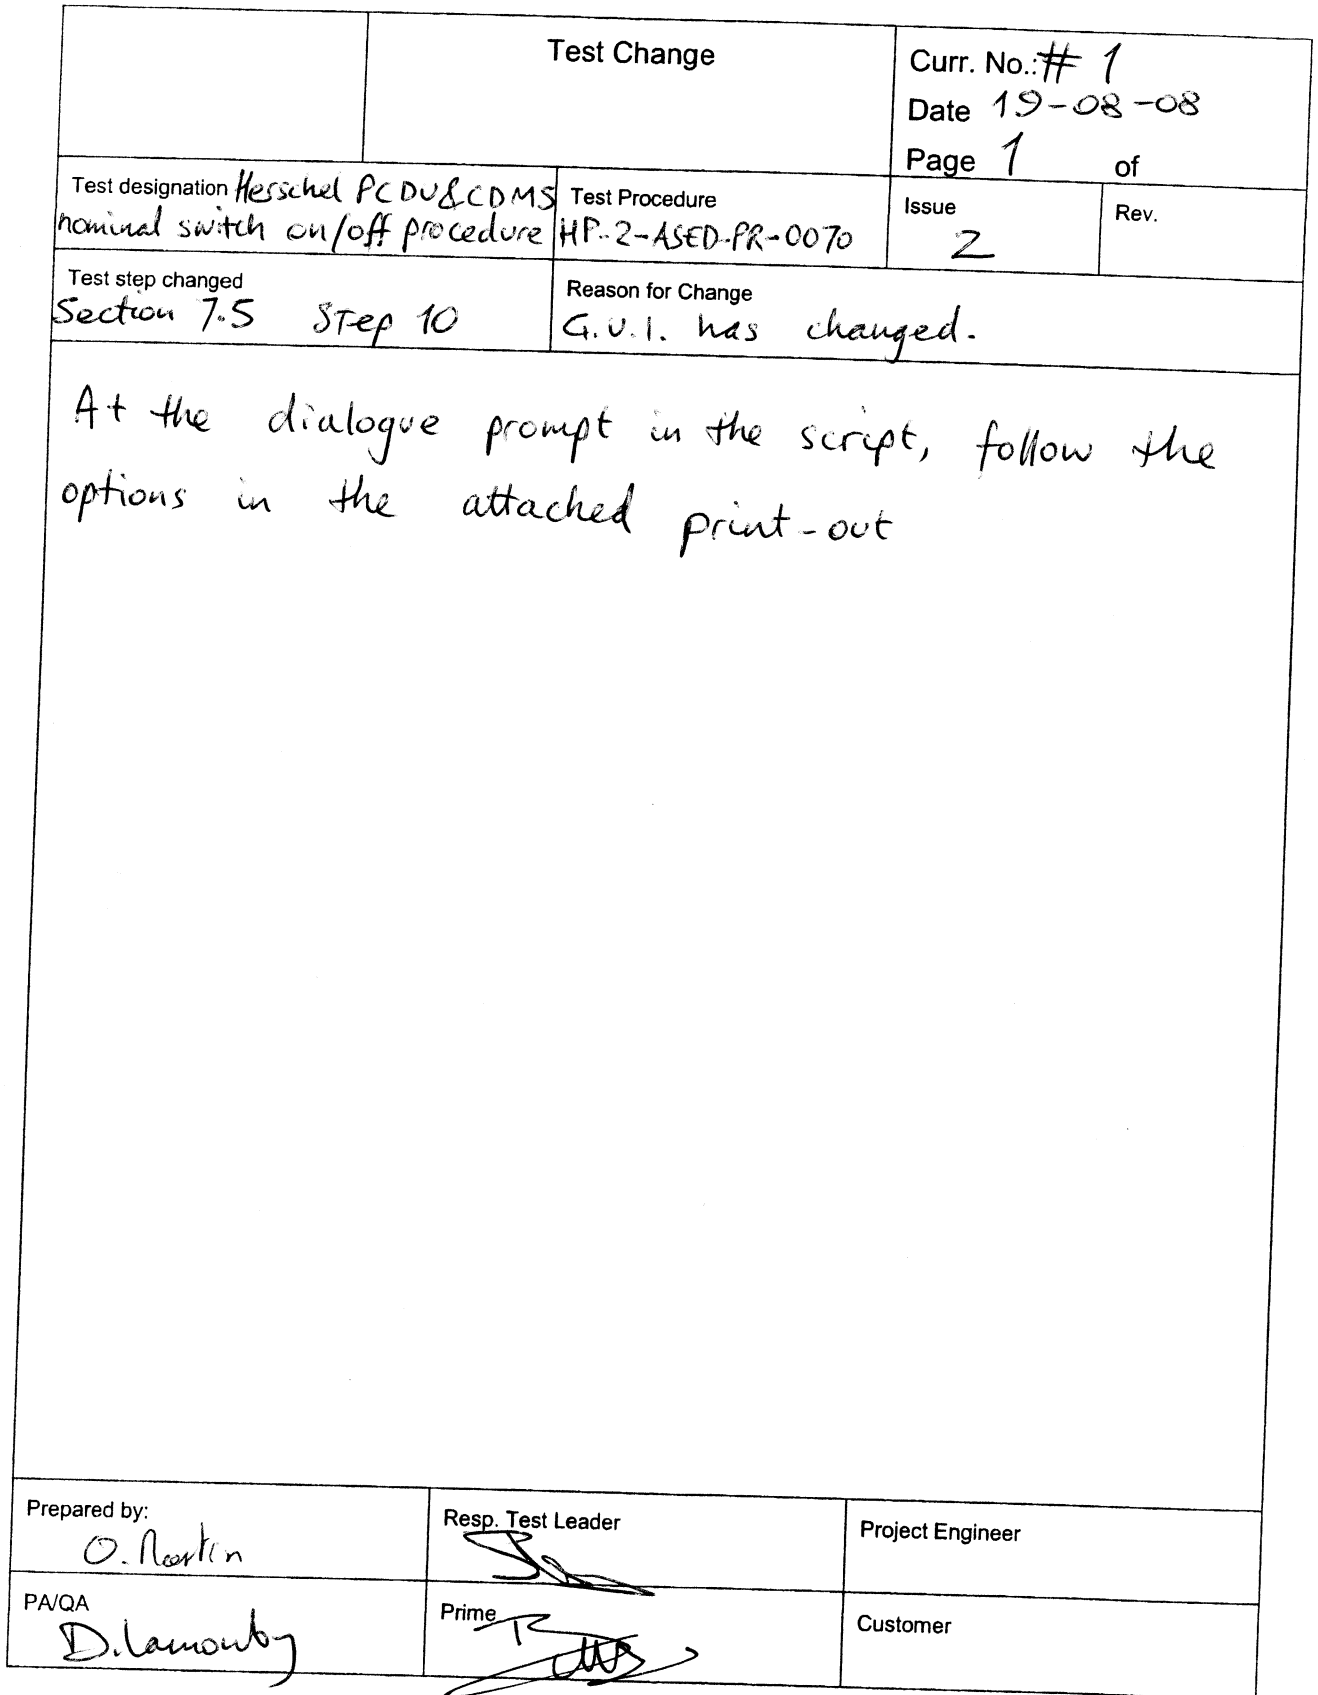 Test Change
Curr. No.: # 1
Date 19-08-08
Page 1 of
Test designation Herschel PCDU&CDMS
nominal switch on/off procedure
Test Procedure
HP-2-ASED-PR-0070
Issue
2
Rev.
Test step changed
Section 7.5 Step 10
Reason for Change
G.U.I. has changed.
At the dialogue prompt in the script, follow the
options in the attached print-out
Prepared by:
O. Martin
Resp. Test Leader
Project Engineer
PA/QA
D. Lamonby
Prime
Customer